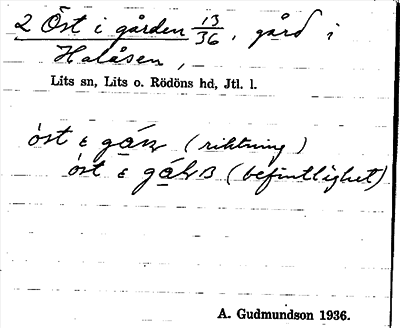 2 Öst i gården 13/36, gård i
Halåsen,
Lits sn, Lits o. Rödöns hd, Jtl. l.
(riktning)
(befintlighet)
A. Gudmundson 1936.